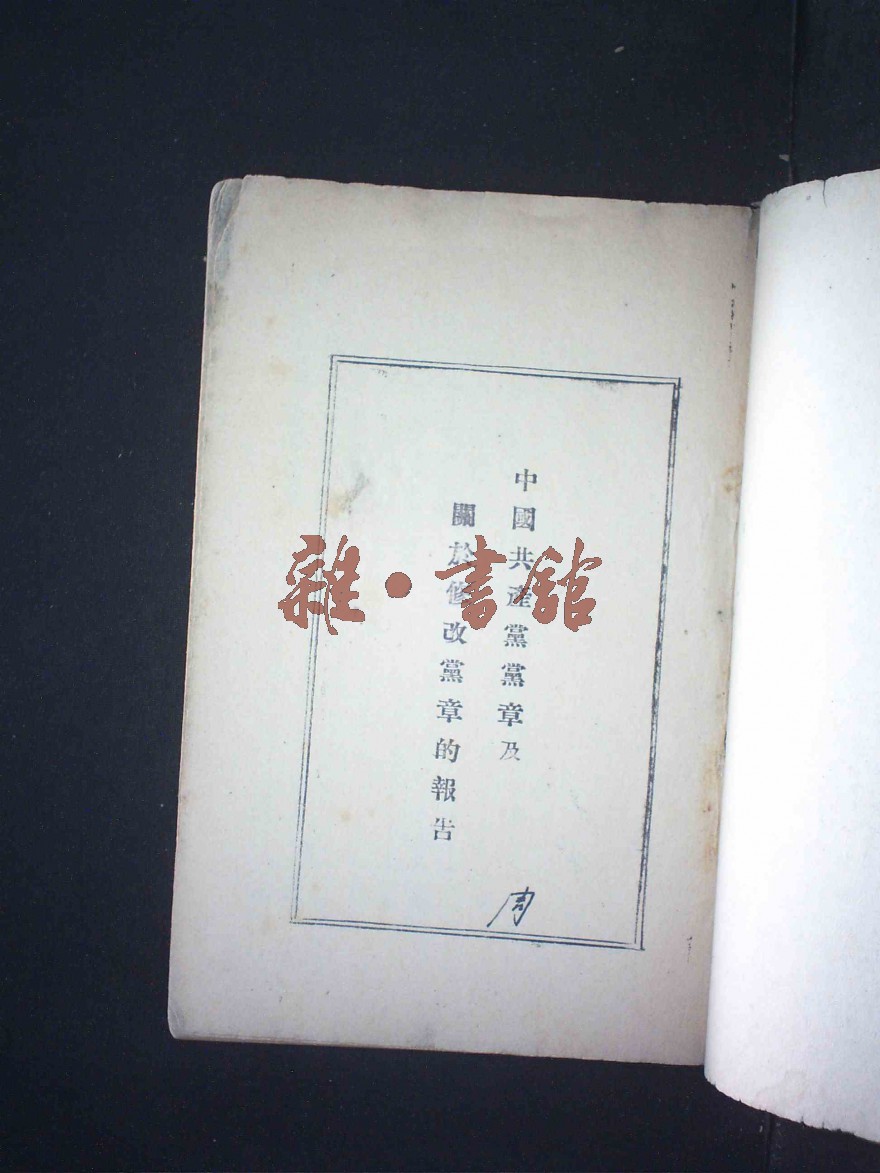 中國共產黨黨章及
關於修改黨章的報告
周
雜·書館